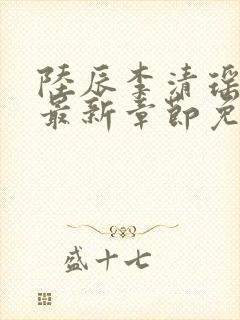 陸辰李清瑶
最新章節免
盛十七